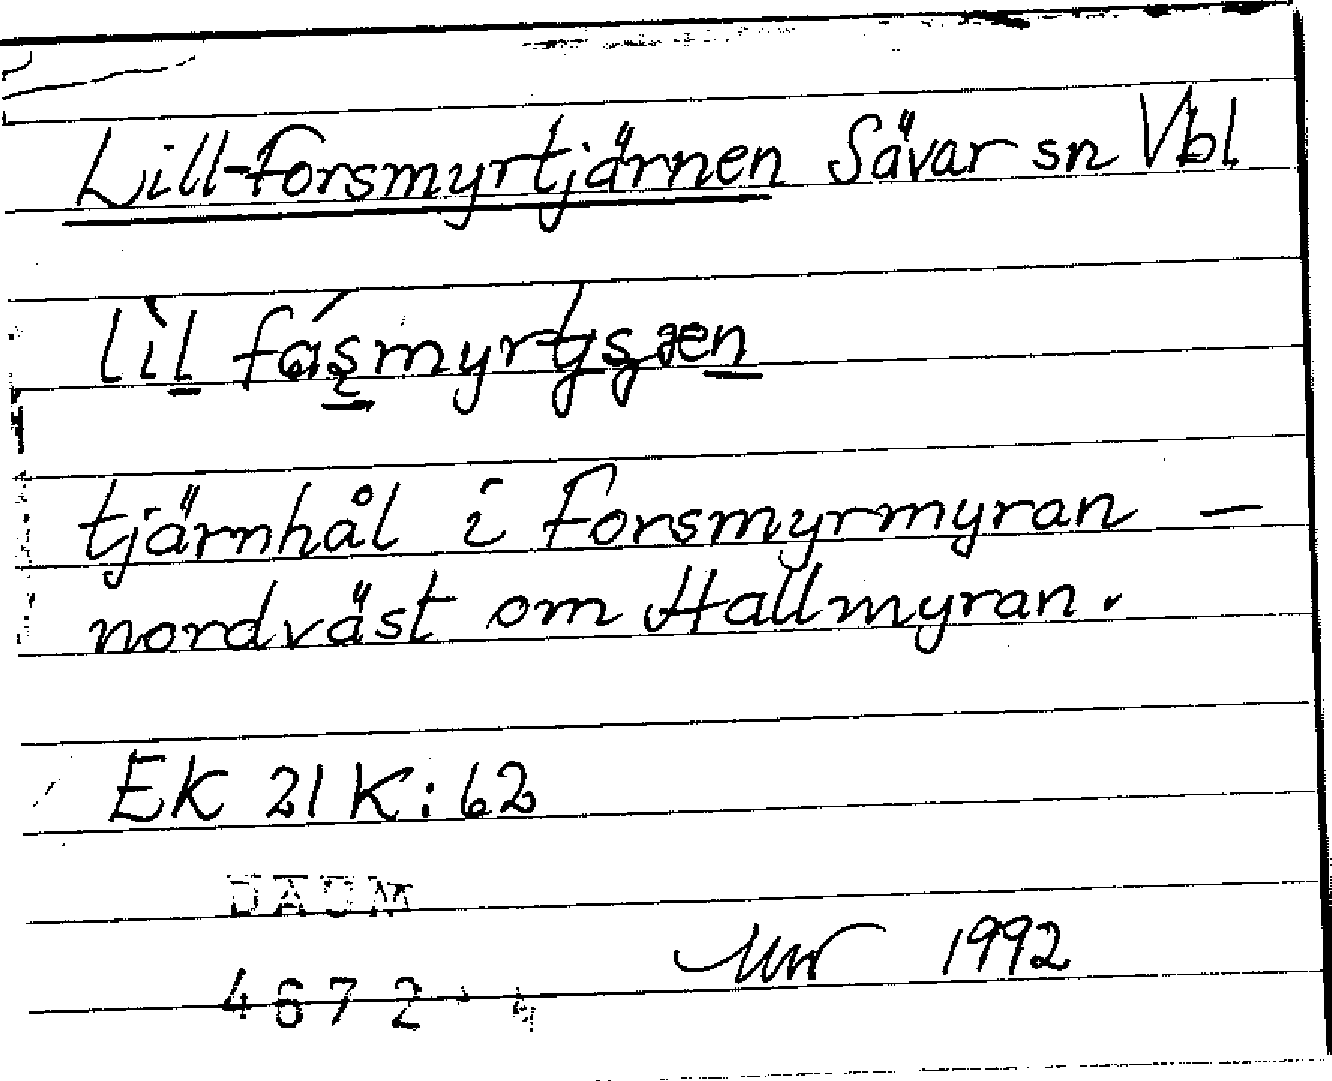 Lill-Forsmyrtjärnen Sävar sn Vbl
lìl
tjärnhål i Forsmyrmyran –
nordväst om Hallmyran.
EK 21 K: 62
DAUM
4672
1992